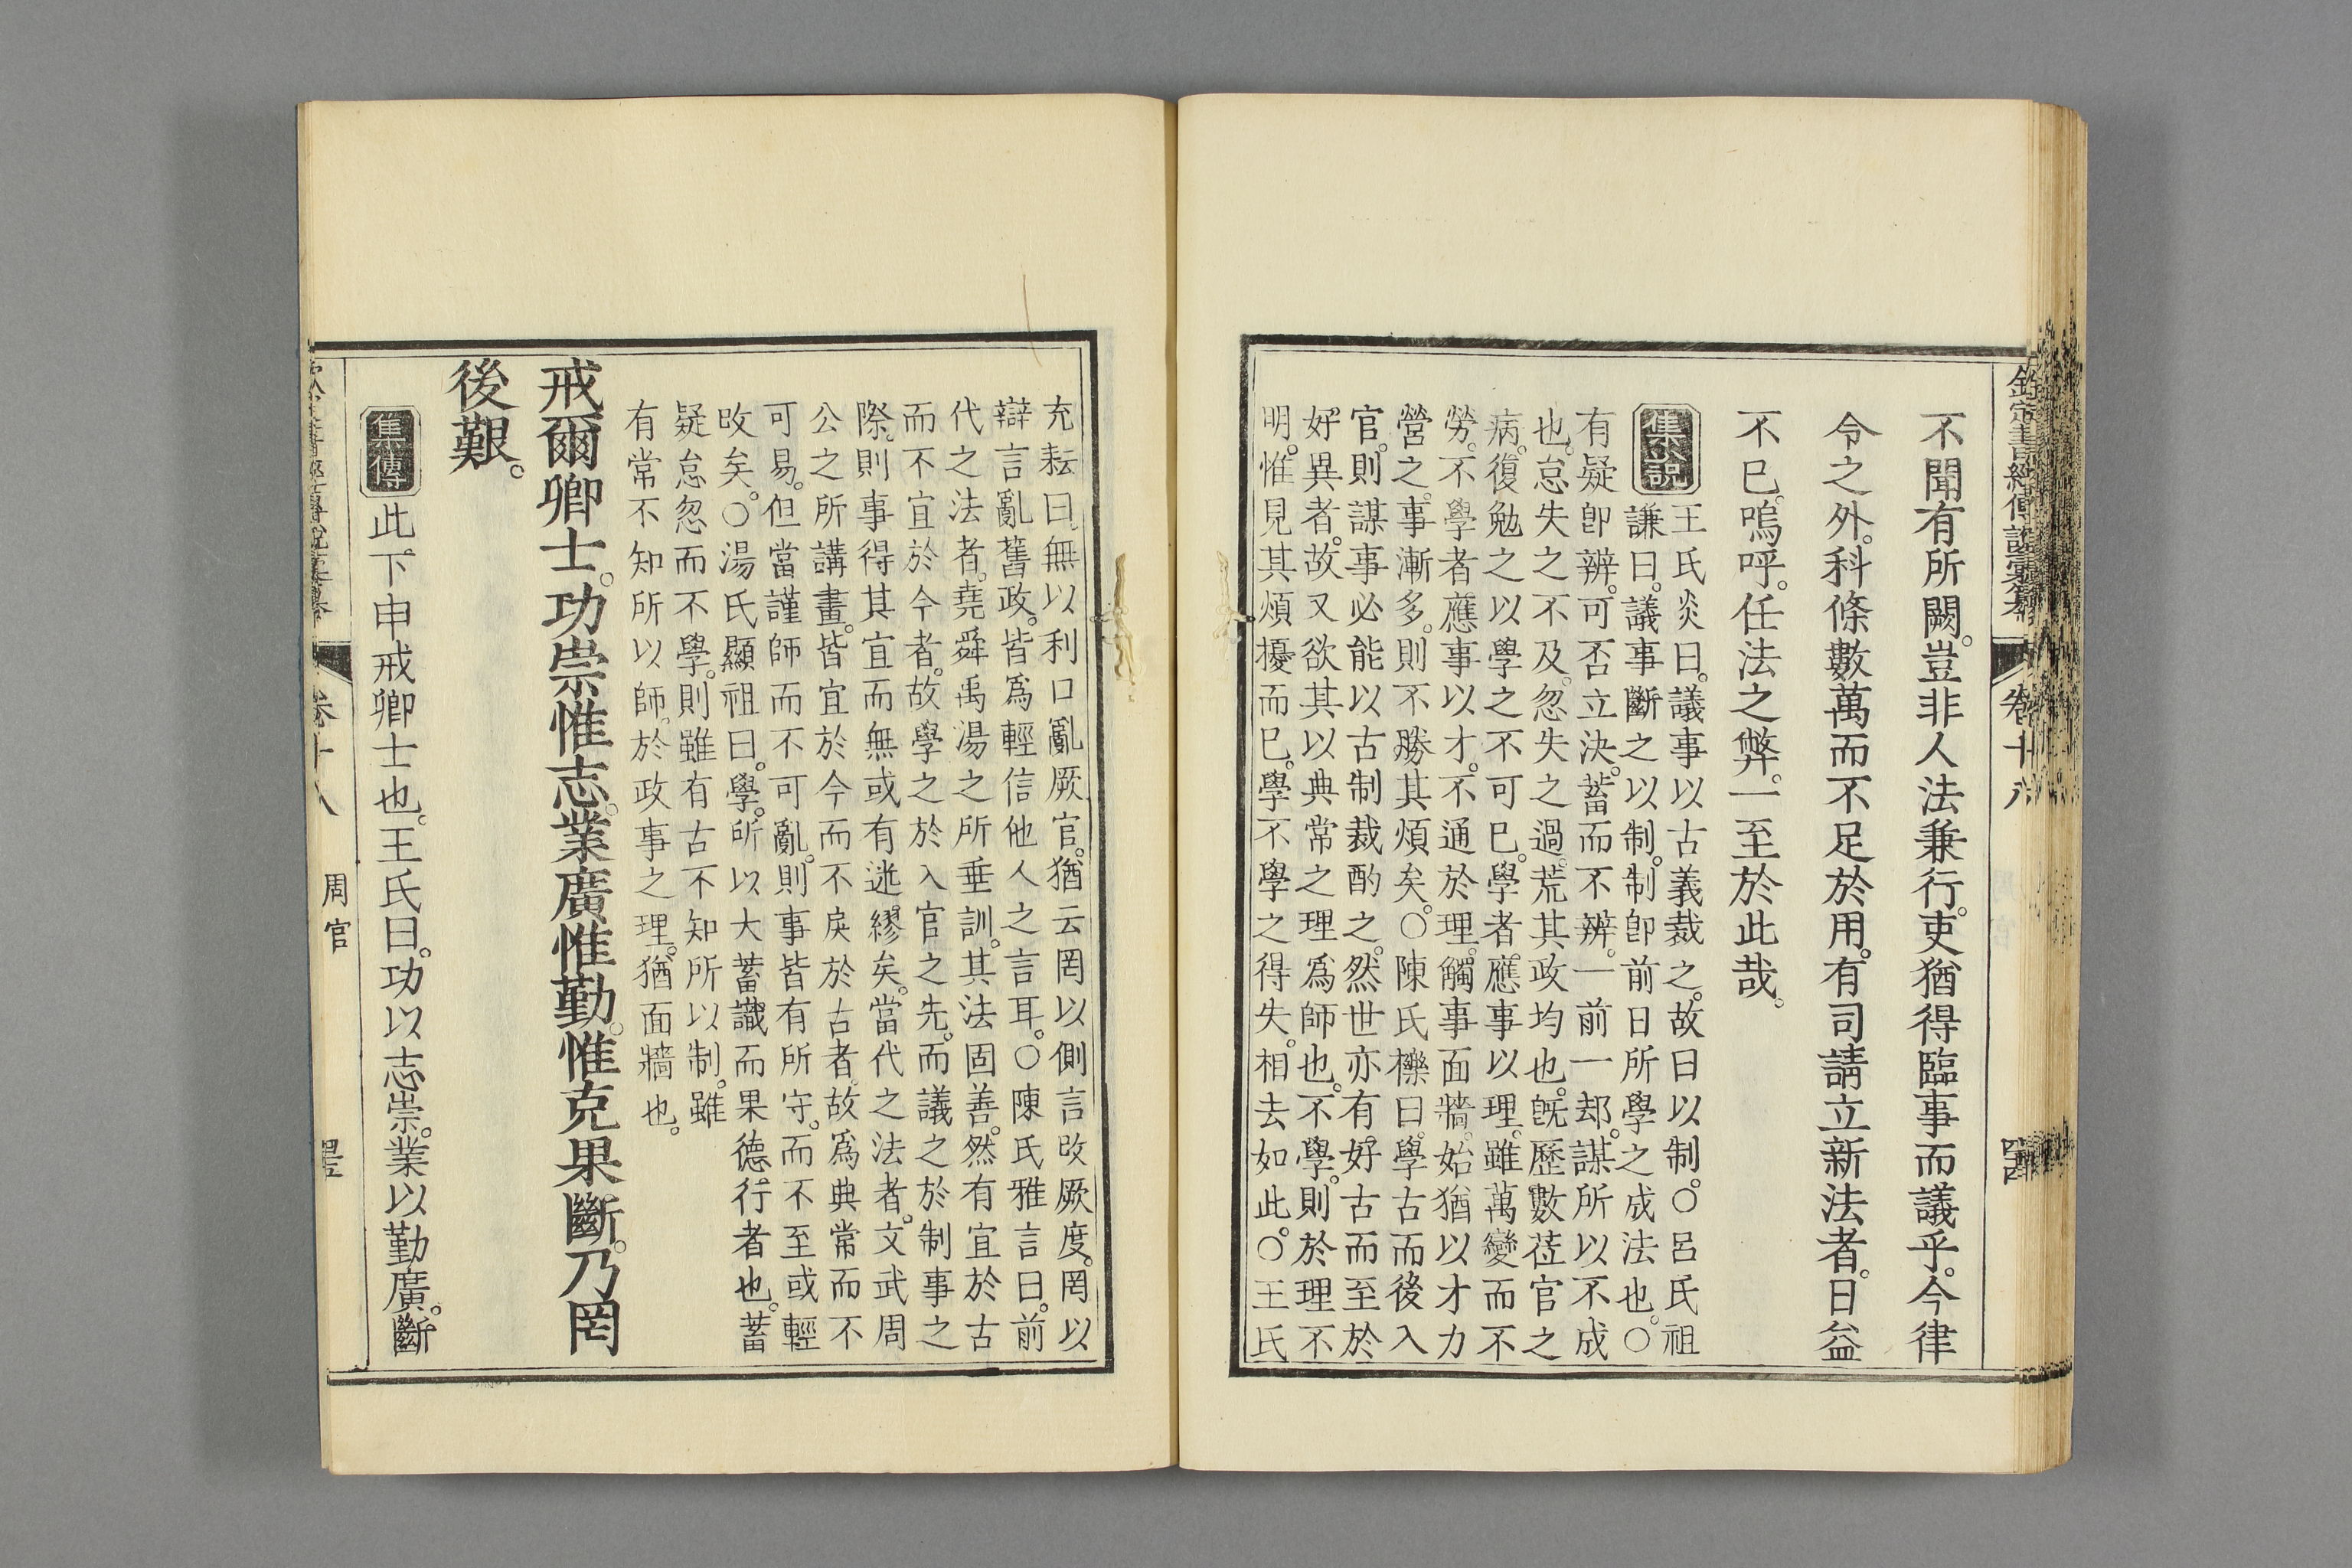 欽定書經傳說彙纂 卷十八
不聞有所闕。豈非人法兼行。吏猶得臨事而議乎。今律
令之外。科條數萬而不足於用。有司請立新法者。日益
不已。嗚呼。任法之弊。一至於此哉。
集說 王氏炎曰。議事以古義裁之。故曰以制。○呂氏祖
謙曰。議事斷之以制。制卽前日所學之成法也。○
有疑卽辨。可否立決。蓄而不辨。一前一却。謀所以不成
也。怠失之不及。忽失之過。荒其政均也。旣歷數莅官之
病。復勉之以學之不可已。學者。應事以理。雖萬變而不
勞。不學者應事以才。不通於理。觸事面牆。始猶以才力
營之。事漸多。則不勝其煩矣。○陳氏櫟曰。學古而後入
官。則謀事必能以古制裁酌之。然世亦有好古而至於
好異者。故又欲其以典常之理爲師也。不學。則於理不
明。惟見其煩擾而已。學不學之得失。相去如此。○王氏
充耘曰。無以利口亂厥官。猶云罔以側言改厥度。罔以
辯言亂舊政。皆爲輕信他人之言耳。○陳氏雅言曰。前
代之法者。堯舜禹湯之所垂訓。其法固善。然有宜於古
而不宜於今者。故學之於入官之先。而議之於制事之
際。則事得其宜而無或有迷繆矣。當代之法者。文武周
公之所講畫。皆宜於今而不戾於古者。故爲典常而不
可易。但當謹師而不可亂。則事皆有所守。而不至或輕
改矣。○湯氏顯祖曰。學。所以大蓄識而果德行者也。蓄
疑怠忽而不學。則雖有古不知所以制。雖
有常不知所以師。於政事之理。猶面牆也。
戒爾卿士。功崇惟志。業廣惟勤。惟克果斷。乃罔
後艱。
集傳 此下申戒卿士也。王氏曰。功以志崇。業以勤廣。斷
卷十八 周官